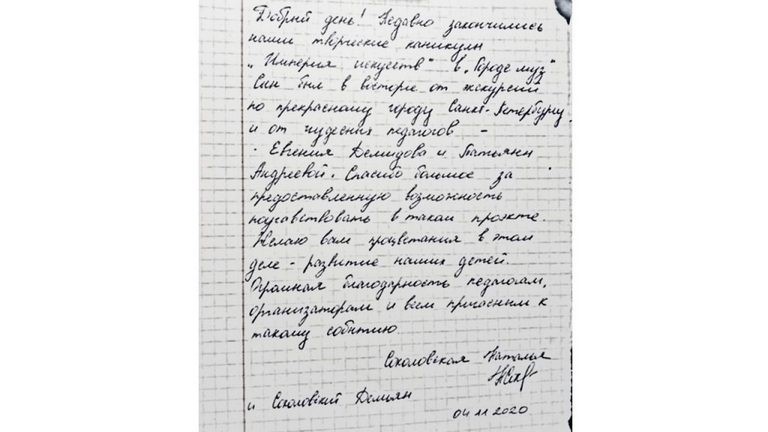 Добрый день! Недавно закончились
наши творческие каникулы
„Империя искусств" в „Городе муз"
Сын был в восторге от экскурсий
по прекрасному городу Санкт-Петербургу
и от чудесных педагогов –
- Евгения Демидова и Татьяны
Андреевой. Спасибо большое за
предоставленную возможность
поучавствовать в таком проекте.
Желаю вам процветания в этом
деле - развитие наших детей.
Огромная благодарность педагогам,
организаторам и всем причастным к
такому событию.
Соколовская Наталья
и Соколовский Демьян
04.11.2020